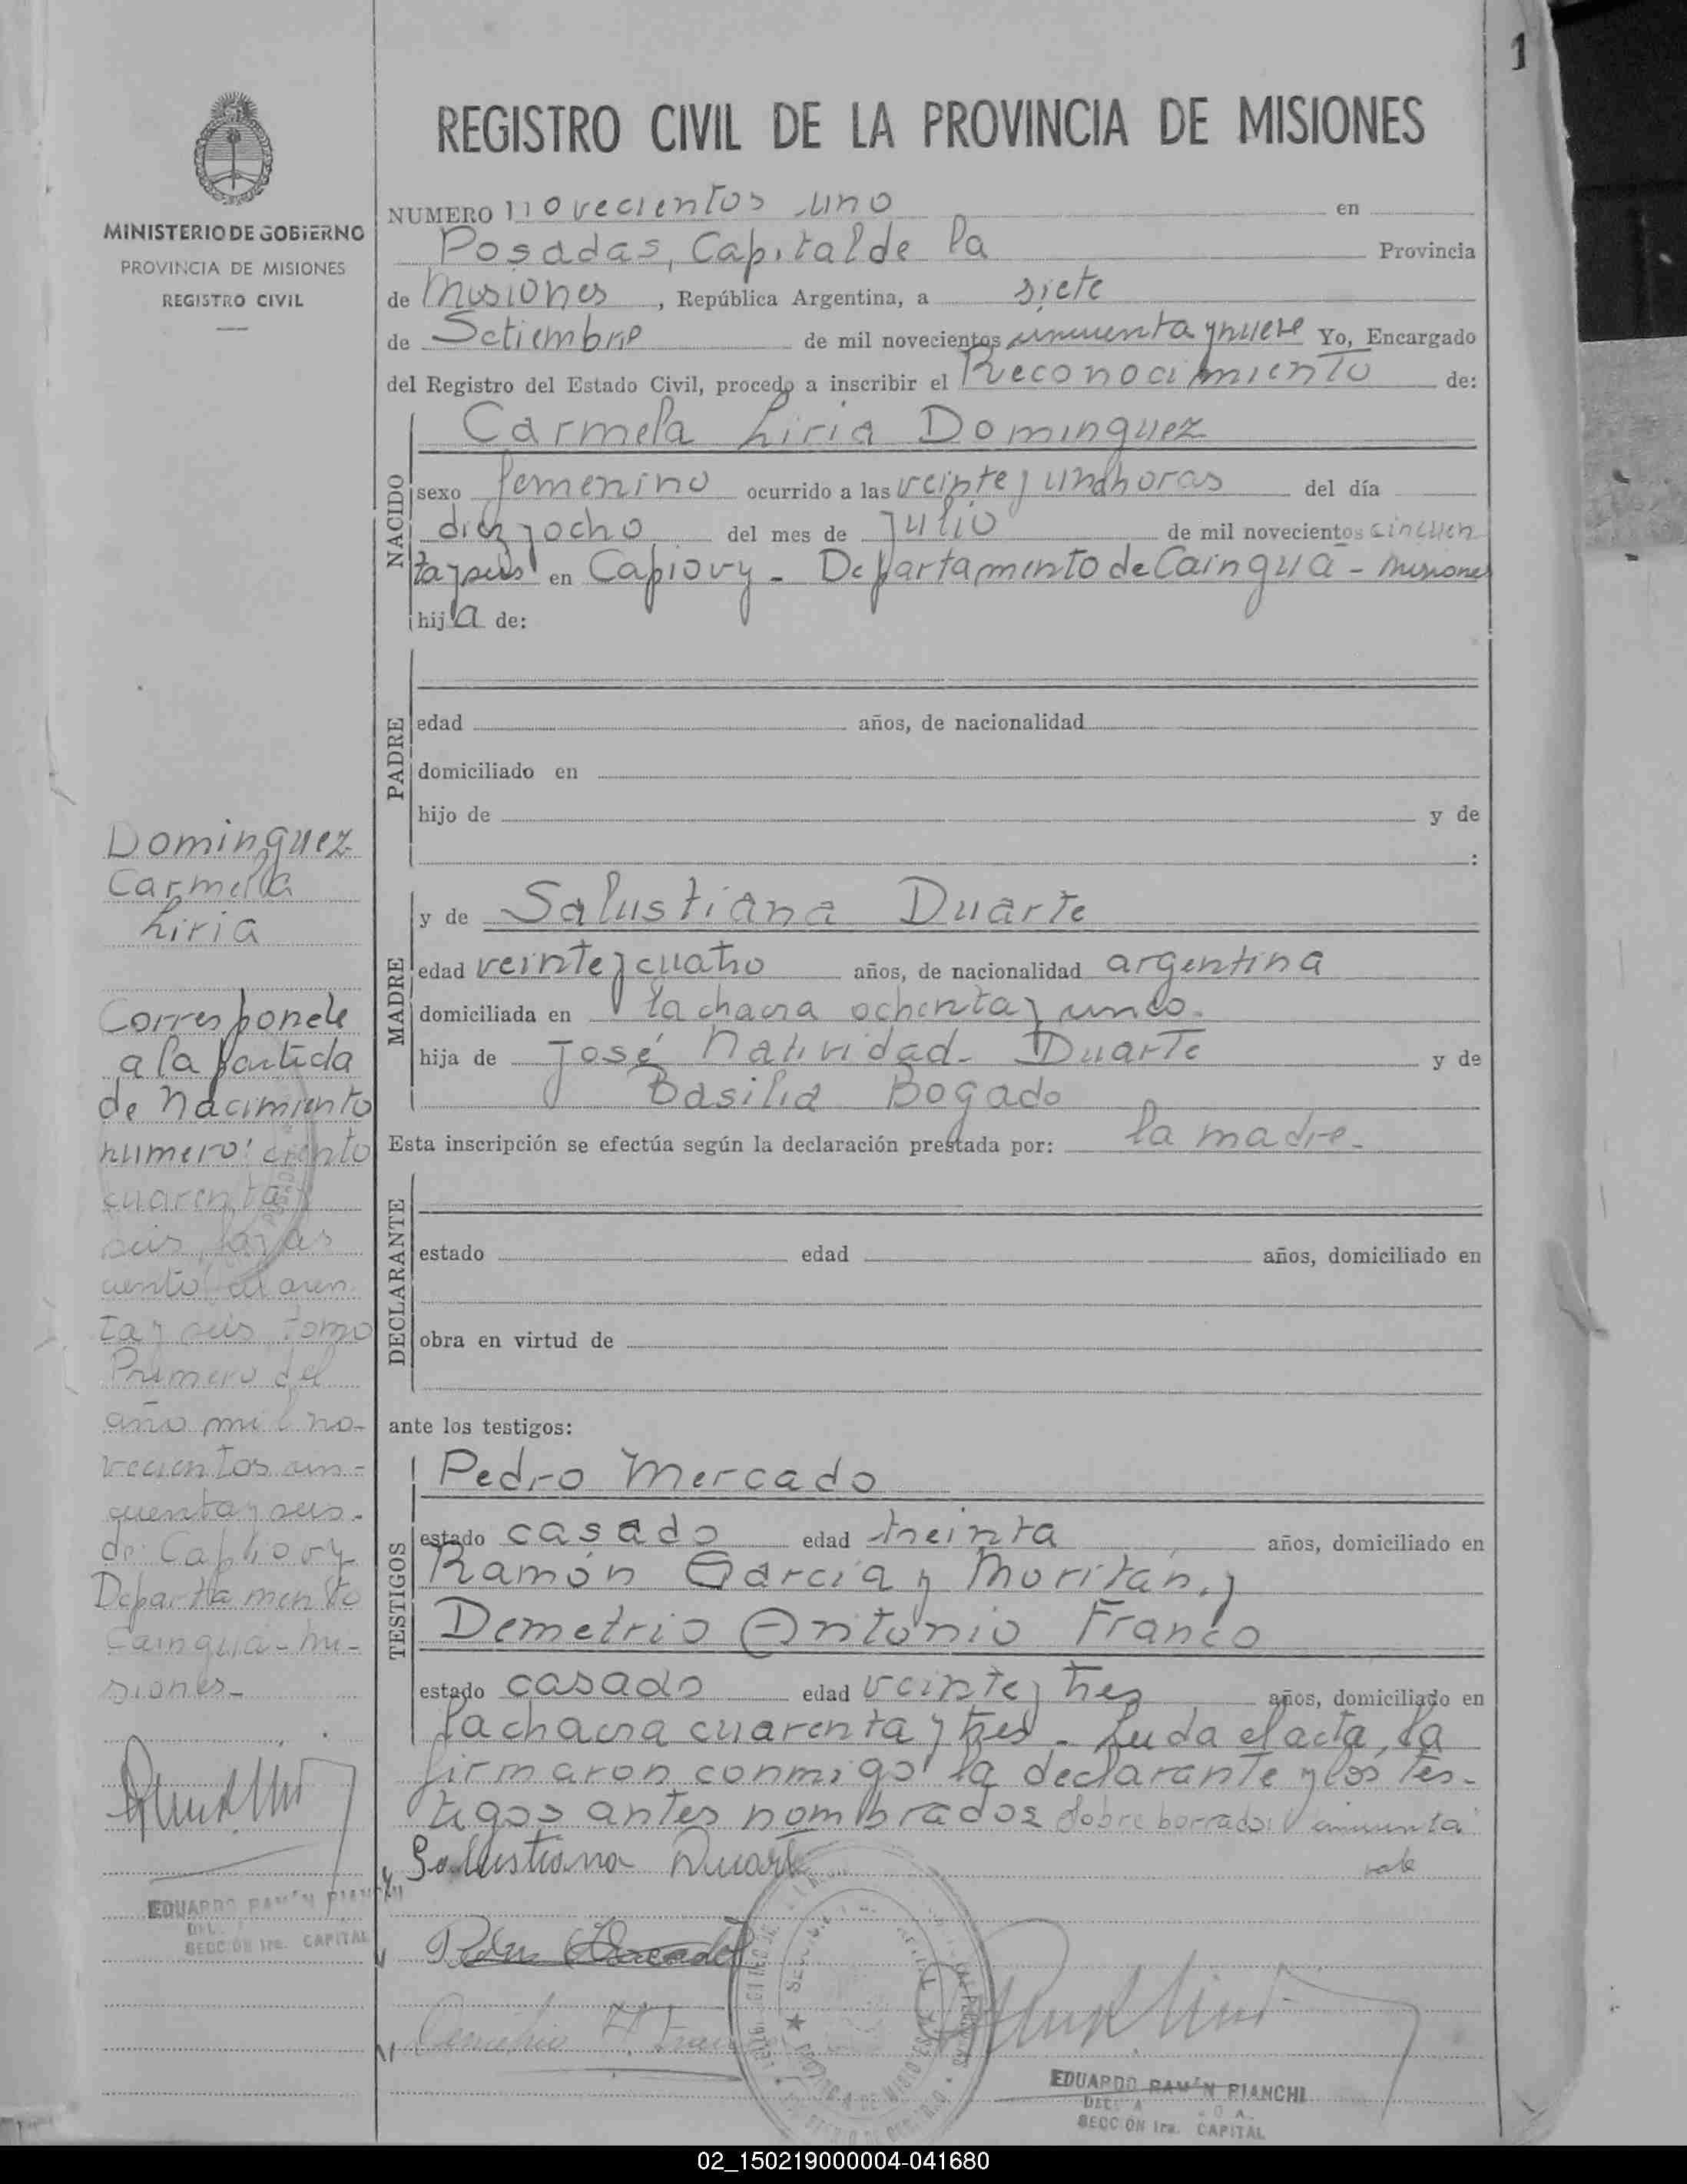 1
REGISTRO CIVIL DE LA PROVINCIA DE MISIONES
MINISTERIO DE GOBIERNO
PROVINCIA DE MISIONES
REGISTRO CIVIL
NUMERO novecientos uno en
Posadas, Capital de la Provincia
de Misiones, República Argentina, a siete
de Setiembre de mil novecientos cincuenta y nueve Yo, Encargado
del Registro del Estado Civil, procedo a inscribir el Reconocimiento de:
NACIDO
Carmela Liria Dominguez
sexo femenino ocurrido a las veinte y una horas del día
diez y ocho del mes de julio de mil novecientos cincuen
ta y seis en Capiovy - Departamento de Cainguá - Misiones
hija de:
PADRE
edad años, de nacionalidad
domiciliado en
hijo de y de
:
MADRE
y de Salustiana Duarte
edad veinte y cuatro años, de nacionalidad argentina
domiciliada en la chacra ochenta y uno.
hija de José Natividad Duarte y de
Basilia Bogado
Esta inscripción se efectúa según la declaración prestada por: la madre.
DECLARANTE
estado edad años, domiciliado en
obra en virtud de
ante los testigos:
TESTIGOS
Pedro Mercado
estado casado edad treinta años, domiciliado en
Ramón Garcia y Moritán, y
Demetrio Antonio Franco
estado casado edad veinte y tres años, domiciliado en
la chacra cuarenta y tres. Leida el acta, la
firmaron conmigo la declarante y los tes-
tigos antes nombrados Sobre borrado: cincuenta
vale
Salustiana Duarte
EDUARDO RAMÓN BIANCHI
SECCION 1ra. CAPITAL
Dominguez
Carmela
Liria
Corresponde
a la partida
de Nacimiento
numero: ciento
cuarenta y
seis, fojas
ciento cuaren
ta y seis tomo
Primero del
año mil no-
vecientos cin-
cuenta y seis.
de Capiovy
Departamento
Cainguá - Mi-
siones-
EDUARDO RAMÓN BIANCHI
SECCION 1ra. CAPITAL
02_150219000004-041680